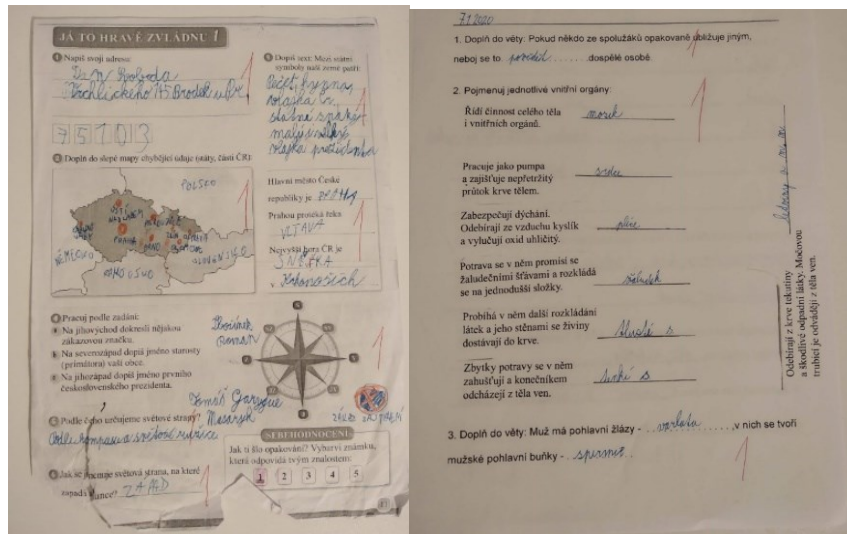 JÁ TO HRAVĚ ZVLÁDNU 1
1 Napiš svoji adresu:
Vrchlického 175 Brodek u Př.
75103
2 Doplň do slepé mapy chybějící údaje (státy, části ČR):
POLSKO
ÚSTÍ
NAD LABEM
PRAHA
BRNO
NĚMECKO
RAKOUSKO
SLOVENSKO
3 Dopiš text: Mezi státní
symboly naší země patří:
Pečeť, hymna,
vlajka
státní znak
malý i velký
vlajka prezidenta
Hlavní město České
republiky je PRAHA
Prahou protéká řeka
VLTAVA
Nejvyšší hora ČR je
SNĚŽKA
v Krkonoších
4 Pracuj podle zadání:
Na jihovýchod dokresli nějakou
zákazovou značku.
Na severozápad dopiš jméno starosty
(primátora) vaší obce.
Na jihozápad dopiš jméno prvního
československého prezidenta.
Roman
Tomáš Garrigue
Masaryk
Podle čeho určujeme světové strany?
Podle kompasu a světové růžice
Jak se jmenuje světová strana, na které
zapadá slunce? ZÁPAD
SEBEHODNOCENÍ
Jak ti šlo opakování? Vybarvi známku,
která odpovídá tvým znalostem:
1 2 3 4 5
7.1.2020
1. Doplň do věty: Pokud někdo ze spolužáků opakovaně ubližuje jiným,
neboj se to povědět dospělé osobě.
2. Pojmenuj jednotlivé vnitřní orgány:
Řídí činnost celého těla
i vnitřních orgánů. mozek
Pracuje jako pumpa
a zajišťuje nepřetržitý
průtok krve tělem. srdce
Zabezpečují dýchání.
Odebírají ze vzduchu kyslík
a vylučují oxid uhličitý. plíce
Potrava se v něm promísí se
žaludečními šťávami a rozkládá
se na jednodušší složky. žaludek
Probíhá v něm další rozkládání
látek a jeho stěnami se živiny
dostávají do krve. tlusté s
Zbytky potravy se v něm
zahušťují a konečníkem
odcházejí z těla ven. tenké s
Odebírají z krve tekutiny
a škodlivé odpadní látky. Močovou
trubicí je odvádějí z těla ven.
3. Doplň do věty: Muž má pohlavní žlázy - varlata, v nich se tvoří
mužské pohlavní buňky - spermie